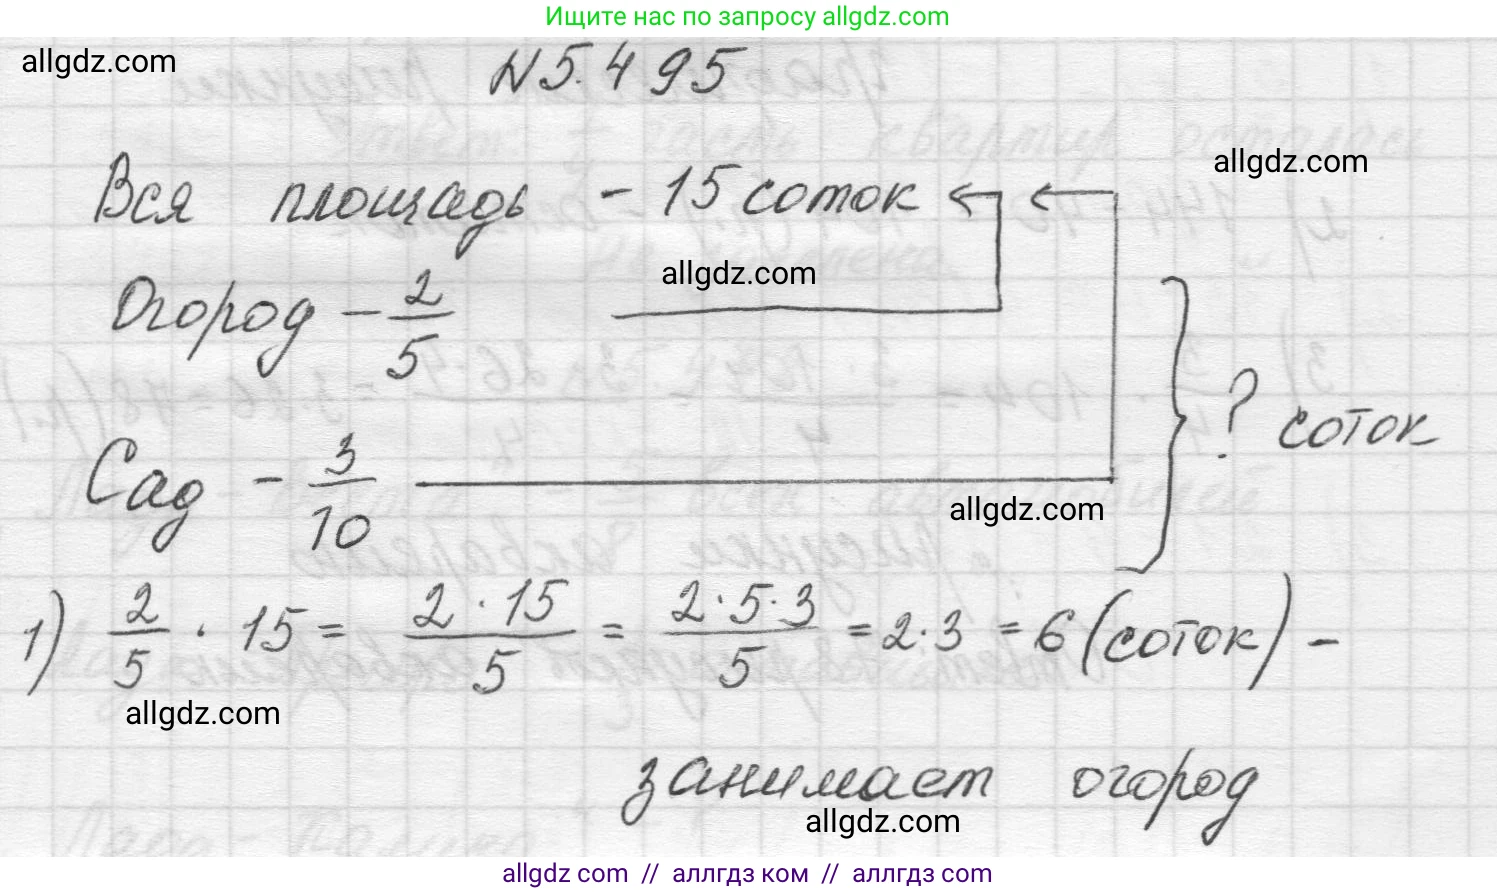 Ищите нас по запросу allgdz.com
allgdz.com
N5.495
allgdz.com
Вся площадь - 15 соток
allgdz.com
Огород - 2/5
? соток
Сад - 3/10
allgdz.com
1) 2/5 · 15 = 2 · 15/5 = 2·5·3/5 = 2·3 = 6 (соток) -
allgdz.com
занимает огород
allgdz.com
allgdz com // аллгдз ком // аллгдз com